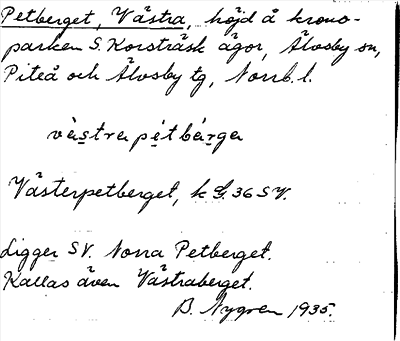 Petberget, Västra, höjd å krono-
parken S. Korsträsk ägor, Älvsby sn,
Piteå och Älvsby tg, Norrb. l.
västra pétbärga
Västerpetberget, k G. 36 SV.
Ligger SV. Norra Petberget.
Kallas även Västraberget.
B. Nygren 1935.